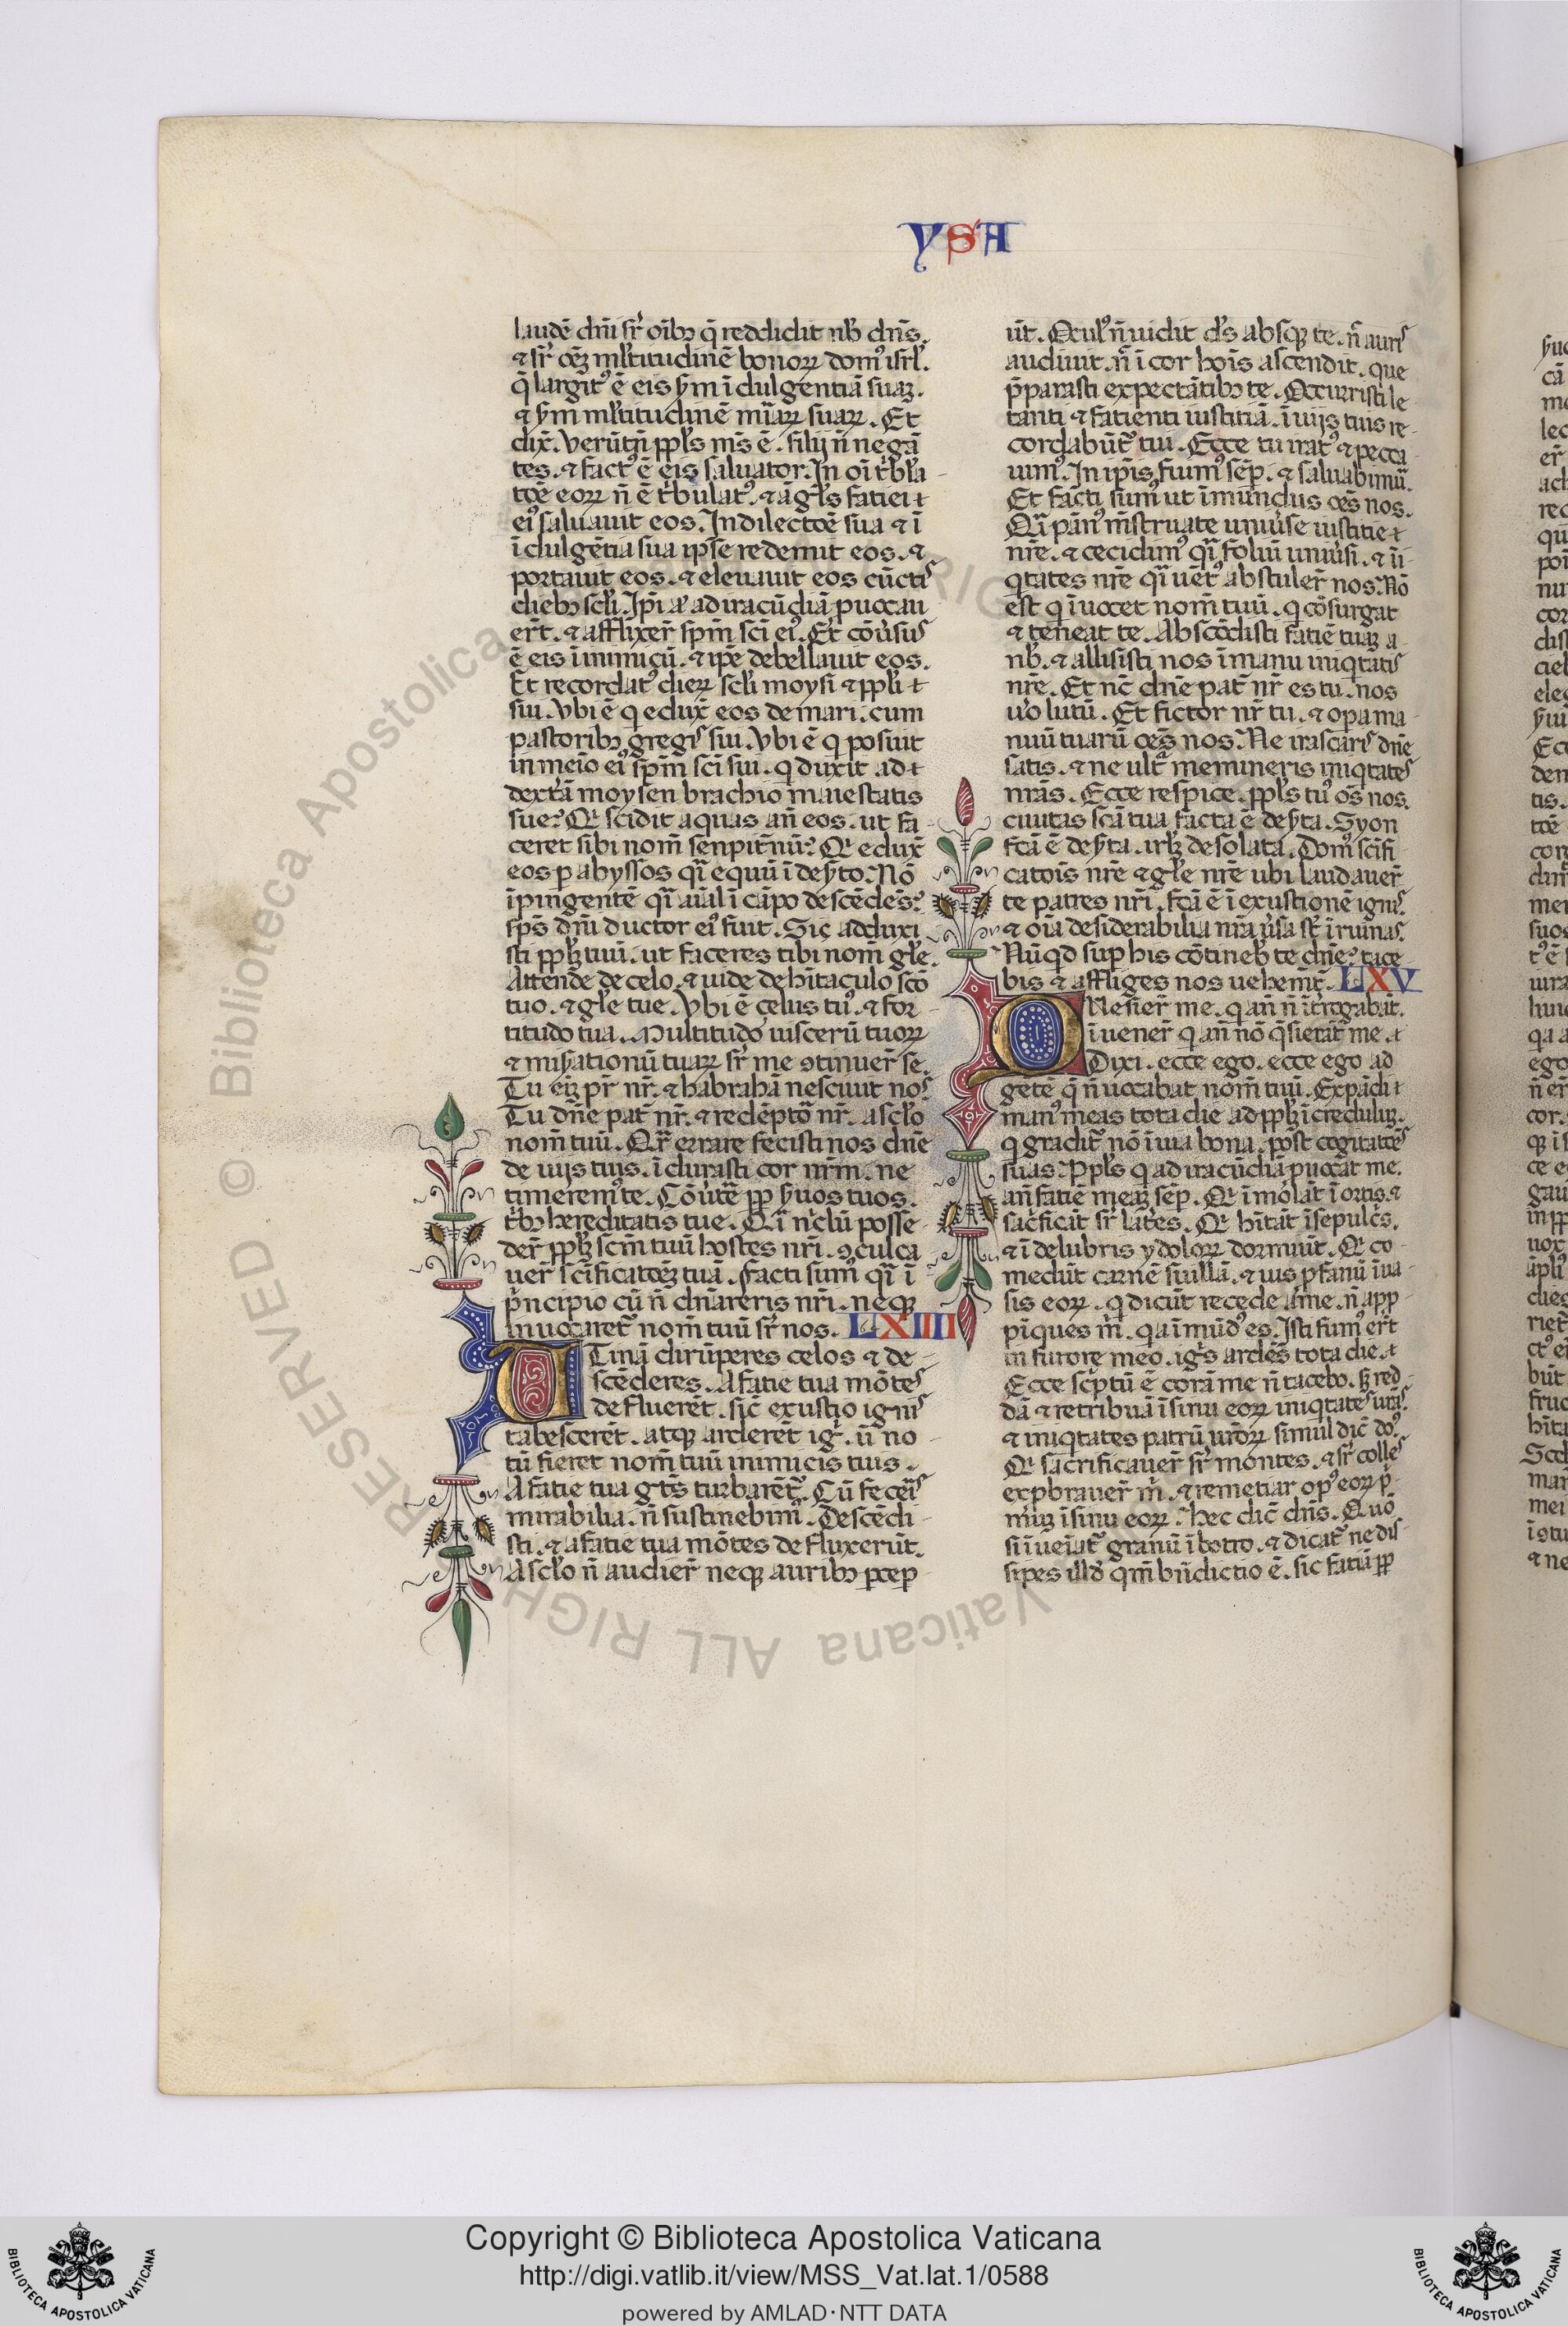 YSA
laudē dn̄i sr̄ oīb; q̄ reddidit nb̄ dn̄s.
⁊ sr̄ oēꝫ ml̄titudinē bonoꝝ domꝰ isrl̄.
q̄ largitꝰ ē eis ẜm īdulgentiā suaꝫ.
⁊ ẜm ml̄titudinē mīaꝝ suaꝝ. Et
dix̄. Verūtn̄ ppl̄s ms̄ ē. filij n̄ negā
tes. ⁊ factꝰ ē eis saluator. In oī tͥbl̄a
tōē eoꝝ n̄ ē tͥbulatꝰ. ⁊ āgl̄s fatiei
eiꝰ saluauit eos. In dilectōē sua ⁊ ī
īdulgētia sua ipse redemit eos. ⁊
portauit eos. ⁊ eleuauit eos cūctis
dieb; scl̄i. Ip̄i aū ad iracūdiā puocau
er̄t. ⁊ afflixer̄ sp̄m sc̄i eiꝰ. Et cōuͥsus
ē eis īimicū. ⁊ ip̄e debellauit eos.
Et recordatꝰ dieꝝ scl̄i moysi ⁊ ppl̄i
sui. Vbi ē q eduxͭ eos de mari. cum
pastorib; gregis sui. Vbi ē q posuit
in meio eiꝰ sp̄m sc̄i sui. q duxit ad
dextrā moysen brachio maiestatis
sue? Qͥ scidit aquas an̄ eos. ut fa
ceret sibi nom̄ senpitn̄ū? Qͥ eduxͭ
eos p abyssos qͣi equū ī deẜto. Nō
īpingentē qͣi aīal ī cāpo descēdēs?
sp̄s dn̄i ductor eiꝰ fuit. Sic adduxi
sti ppl̄ꝫ tuū. ut faceres tibi nom̄ gl̄e.
Attende de celo. ⁊ uide de hīTaculo scō
tuo. ⁊ gl̄e tue. Vbi ē celus tuꝰ. ⁊ for
titudo tua. Multitudo uiscerū tuoꝝ
⁊ miẜationū tuaꝝ sr̄ me ꝯtinuer̄ se.
Tu eīꝫ pr̄ nr̄. ⁊ habrahā nesciuit nos
Tu dn̄e pat̄ nr̄. ⁊ redēptͦ nr̄. a scl̄o
nom̄ tuū. Qr̄ errare fecisti nos dn̄e
de uijs tuis. īdurasti cor nr̄m. ne
timeremꝰ te. Cōuͥte pp̄ ẜuos tuos.
tͥb; hereditatis tue. Qͣi nͥchū posse
der̄ ppl̄ꝫ sc̄m tuū hostes nr̄i. ꝯculca
uer̄ sc̄ificatōeꝫ tuā. facti sumꝰ qͣi ī
pͥncipio cū n̄ dn̄areris nr̄i. neqꝫ
inuocaret̄ nom̄ tuū sr̄ nos. LXIIII
UTinā dirūperes celos ⁊ de
scēderes. A fatie tua mōtes
defluerēt. sic̄ exustio ignis
tabescerēt. atqꝫ arderēt igͥ. ū no
tū fieret nom̄ tuū inimicis tuis.
A fatie tua gͤtes turbarēt̄. Cū feceris
mirabilia. n̄ sustinebimꝰ. Descēdi
sti. ⁊ a fatie tua mōtes defluxerūt.
A scl̄o n̄ audier̄ neqꝫ aurib; pcep
ūt. Oculꝰ n̄ uidit ds̄ absqꝫ te. n̄ auris
audiuit. n̄ ī cor hoīs ascendit. que
p̄parasti expectātib; te. Occurristi le
tanti ⁊ fatienti iustitiā. ī uijs tuis re
cordabūt̄ tui. Ecce tu iratꝰ ⁊ pecca
uimꝰ. In ip̄is fuimꝰ sēp. ⁊ saluabimū.
Et facti sumꝰ ut īmundus oēs nos.
Qͣi pānꝰ mēstruate uniuͥse iustitie
nr̄e. ⁊ cecidimꝰ qͣi foliū uniuͥsi. ⁊ ī
qtates nr̄e qͣi uētꝰ abstuler̄ nos. Nō
est q īuocet nom̄ tuū. q cōsurgat
⁊ teneat te. Abscōdisti fatiē tuaꝫ a
nb̄. ⁊ allisisti nos ī manu iniqtatis
nr̄e. Et nc̄ dn̄e pat̄ nr̄ es tu. nos
uͦo lutū. Et fictor nr̄ tu. ⁊ opa ma
nuū tuarū oēs nos. Ne irascaris dn̄e
satis. ⁊ ne ultͣ memineris iniqtates
nrās. Ecce respice. ppl̄s tuꝰ oēs nos.
ciuitas scā tua facta ē deẜta. Syon
fcā ē deẜta. irl̄ꝫ desolata. Domꝰ sc̄ifi
catōis nr̄e ⁊ gl̄e nr̄e ubi laudauer̄
te patres nr̄i. fcā ē ī exustionē ignis.
⁊ oīa desiderabilia nrā uͥsa st̄ ī ruinas.
Nūqd sup his cōtineb̄ te dn̄e? tace
bis ⁊ affliges nos uehemͭ. LXV
QVesier̄ me. q an̄ n̄ īterogabāt.
īuener̄ q an̄ nō q̄sierāt me.
Dixi. ecce ego. ecce ego ad
gētē q̄ n̄ uocabat nom̄ tuū. Expādi
manꝰ meas tota die ad ppl̄ꝫ īcreduluꝫ.
q gradit̄ nō ī uia bona. post cogitatōēs
suas. Ppl̄s q ad iracūdiā puocat me.
an̄ fatiē meaꝫ sēp. Qͥ īmolāt ī ortis. ⁊
sacͥficāt sr̄ latͤes. Qͥ hītāt ī sepulcͥs.
⁊ ī delubris ydoloꝝ dormiūt. Qͥ co
medūt carnē suillā. ⁊ ius pfanū ī ua
sis eoꝝ. q dicūt recede a me. n̄ app
pīques m̄. qa īmūdꝰ es. Isti fumꝰ er̄t
in furore meo. igͥs ardēs tota die.
Ecce scͥptū ē corā me n̄ tacebo. sꝫ red
dā ⁊ retribuā ī sinu eoꝝ iniqtates urās.
⁊ iniqtates patrū uroꝝ simul dic̄ dn̄s.
Qͥ sacrificauer̄ sr̄ montes. ⁊ sr̄ colles
expbrauer̄ m̄. ⁊ remetiar opꝰ eoꝝ pͥ
muꝫ ī sinu eoꝝ. Hec dic̄ dn̄s. Quō
si īueiat̄ granū ī botro. ⁊ dicat̄ ne dis
sipes illd̄ qm̄ bn̄dictio ē. sic fatiā pp̄
© Biblioteca Apostolica Vaticana ALL RIGHTS RESERVED
Copyright © Biblioteca Apostolica Vaticana
http://digi.vatlib.it/view/MSS_Vat.lat.1/0588
powered by AMLAD·NTT DATA
BIBLIOTECA APOSTOLICA VATICANA
BIBLIOTECA APOSTOLICA VATICANA